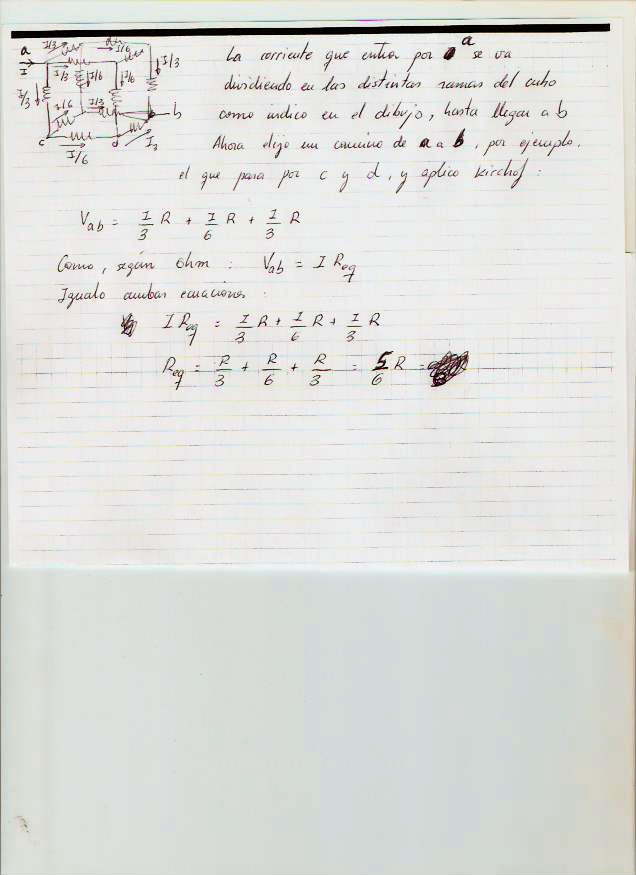 a
I
I/3
I/6
I/3
I/3
I/6
I/6
I/3
I/6
I/3
b
c
d
I/6
La corriente que entra por a se va
dividiendo en las distintas ramas del cubo
como indico en el dibujo, hasta llegar a b
Ahora elijo un camino de a a b, por ejemplo,
el que pasa por c y d, y aplico Kirchof :
Vab = I/3 R + I/6 R + I/3 R
Como, según Ohm : Vab = I Req
Igualo ambas ecuaciones :
I Req = I/3 R + I/6 R + I/3 R
Req = R/3 + R/6 + R/3 = 5/6 R =